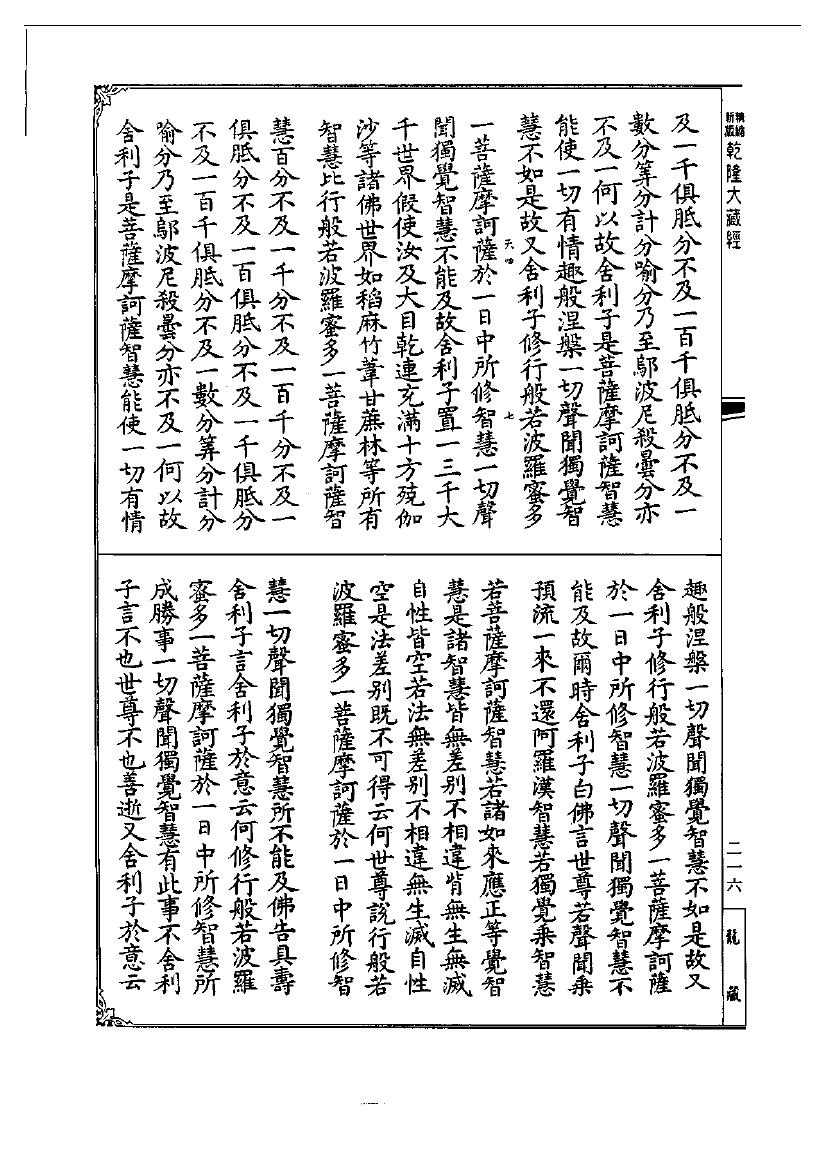 精縮新版 乾隆大藏經
及一千俱胝分不及一百千俱胝分不及一
數分筭分計分喻分乃至鄔波尼殺曇分亦
不及一何以故舍利子是菩薩摩訶薩智慧
能使一切有情趣般涅槃一切聲聞獨覺智
慧不如是故又舍利子修行般若波羅蜜多
天四 七
一菩薩摩訶薩於一日中所修智慧一切聲
聞獨覺智慧不能及故舍利子置一三千大
千世界假使汝及大目乾連充滿十方殑伽
沙等諸佛世界如稻麻竹葦甘蔗林等所有
智慧比行般若波羅蜜多一菩薩摩訶薩智
慧百分不及一千分不及一百千分不及一
俱胝分不及一百俱胝分不及一千俱胝分
不及一百千俱胝分不及一數分筭分計分
喻分乃至鄔波尼殺曇分亦不及一何以故
舍利子是菩薩摩訶薩智慧能使一切有情
趣般涅槃一切聲聞獨覺智慧不如是故又
舍利子修行般若波羅蜜多一菩薩摩訶薩
於一日中所修智慧一切聲聞獨覺智慧不
能及故爾時舍利子白佛言世尊若聲聞乘
預流一來不還阿羅漢智慧若獨覺乘智慧
若菩薩摩訶薩智慧若諸如來應正等覺智
慧是諸智慧皆無差別不相違背無生無滅
自性皆空若法無差別不相違無生滅自性
空是法差別既不可得云何世尊說行般若
波羅蜜多一菩薩摩訶薩於一日中所修智
慧一切聲聞獨覺智慧所不能及佛告具壽
舍利子言舍利子於意云何修行般若波羅
蜜多一菩薩摩訶薩於一日中所修智慧所
成勝事一切聲聞獨覺智慧有此事不舍利
子言不也世尊不也善逝又舍利子於意云
二一六
龍藏